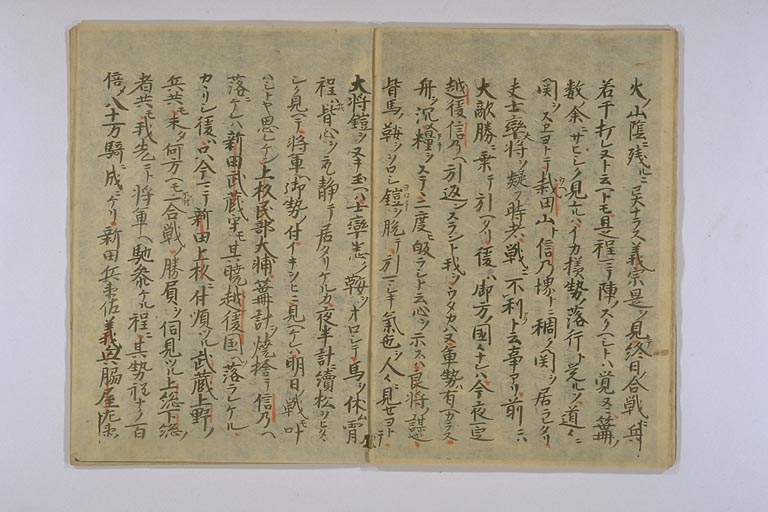 火ノ山陰ニ残ルニ巨ナラス義宗是ヲ見終日ノ合戦ニ兵
若干打レヌト云ヘトモ是程ニテ陣ヲスクヘシトハ覚又ニ篝ノ
数余ニサヒシク見ルハイカ様勢ノ落行ト覚ルソ道々ニ
関ヲスヱヨトテ栽田山ト信乃堺ナニ稠ク関ヲ居ラレタリ
夫士卒将ヲ疑フ時ハ戦不利ト云事アリ前ニハ
大敵勝ニ乗テ引ヘタリ後ハ御方ノ国々ナレハ今夜一定
越後信乃ヘ引返サスラント我ヲウタカハヌ軍勢有ヘカラス
舟ヲ沈メ糧ヲステヽ二度皈ラシト云心ヲ示スハ良将ノ謀也
皆馬ノ鞍ヲヲロシ鎧ヲ脱テ引マシキ気色ヲ人々ニ見セヨトテ
大将鎧ヲヌキ玉ヘハ士卒悉ク鞍ヲオロシテ馬ヲ休ム宵
程ハ皆心ヲ静テ居タリケルカ夜半計ニ続松ヲヒタ
シク見ヘテ将軍ヘ御勢ノ付イキヲヒニ見ヘケレハ明日ノ戦モ叶
ハシトヤ思レケン上杉民部大輔篝計ヲ焼捨テ信乃ヘ
落ニケレハ新田武蔵守モ其暁越後国ヘ落ラレケル
カヽリシ後ハ只今マテ新田上杉ニ付順ヒツル武蔵上野ノ
兵共モ未タ何方ヘモ不付一合戦ノ勝負ヲ伺見ツル上総下総ノ
者共モ我先ニト将軍ヘ馳参ケル程ニ其勢程ナク百
倍メ八十万騎ニ成ニケリ新田兵衛佐義興脇屋左衛